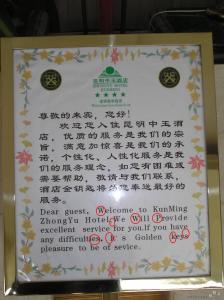 昆明中玉酒店
★★★★
尊敬的来宾，您好！
欢迎您入住昆明中玉酒
店，优质的服务是我们的宗
旨，满意加惊喜是我们的承
诺，个性化、人性化服务是我
们的服务理念，如您有困难或
需要帮助，敬请与我们联系，
酒店金钥匙将给您奉送最好的
服务。
Dear guest, Welcome to KunMing
ZhongYu Hotel.We Will Provide
excellent service for you.If you have
any difficulties, It's Golden keys
pleasure to be of sevice.